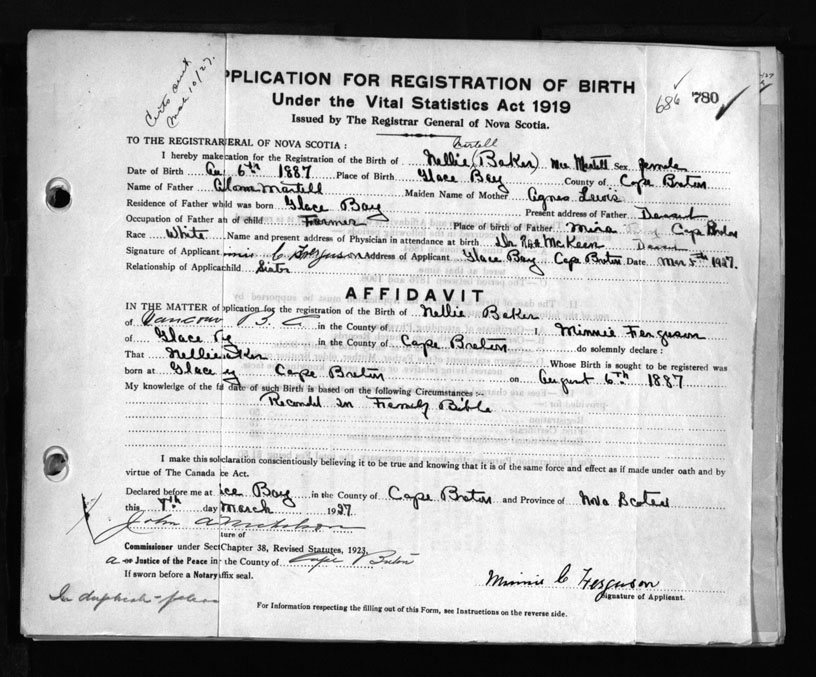 Certs sent
Mar 10/27.
PPLICATION FOR REGISTRATION OF BIRTH
Under the Vital Statistics Act 1919
Issued by The Registrar General of Nova Scotia.
686 780
TO THE REGISTRAR ERAL OF NOVA SCOTIA:
I hereby make cation for the Registration of the Birth of Nellie (Baker) nee Martell Sex female
Date of Birth Au 6th 1887 Place of Birth Glace Bay County of Cape Breton
Name of Father Martell Maiden Name of Mother Agnes Lewis
Residence of Father wh ld was born Glace Bay Present address of Father
Occupation of Father a n of child Farmer Place of birth of Father Mira Cape Breton
Race White Name and present address of Physician in attendance at birth Dr McKeen
Signature of Applicant nnie C Ferguson Address of Applicant Glace Bay Cape Breton Date Mar 5th 1927.
Relationship of Applica child Sister
AFFIDAVIT
IN THE MATTER of pplication for the registration of the Birth of Nellie Baker
of Vancouv B. C. in the County of I, Minnie Ferguson
of Glace in the County of Cape Breton do solemnly declare:
That Nellie ker Whose Birth is sought to be registered was
born at Glace y Cape Breton on August 6th 1887
My knowledge of the fa date of such Birth is based on the following Circumstances:-
Recorded in Family Bible
I make this so claration conscientiously believing it to be true and knowing that it is of the same force and effect as if made under oath and by
virtue of The Canada ce Act.
Declared before me at ce Bay in the County of Cape Breton and Province of Nova Scotia
this 7th day March 1927.
John A Nicholson
ture of
Commissioner under Sect Chapter 38, Revised Statutes, 1923,
a or Justice of the Peace in the County of Cape Breton
If sworn before a Notary ffix seal.
Minnie C Ferguson
Signature of Applicant.
In duplicate
For Information respecting the filling out of this Form, see Instructions on the reverse side.